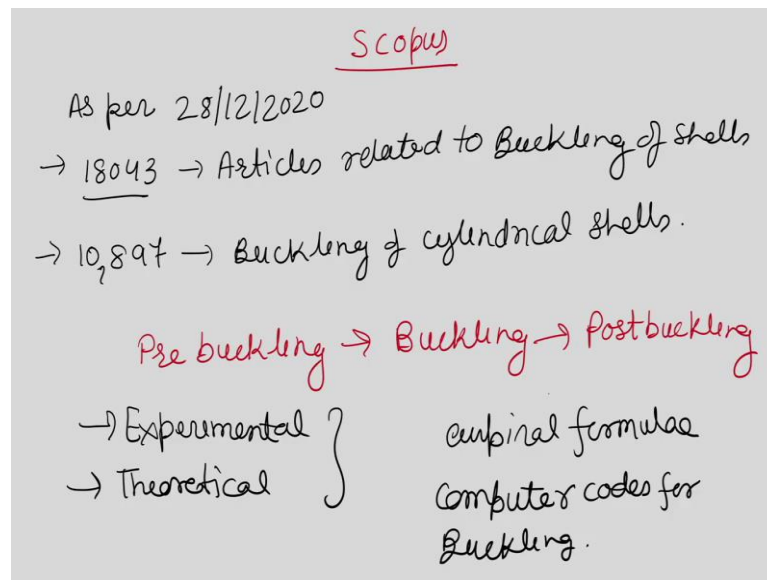 Scopus
As per 28/12/2020
→ 18043 → Articles related to Buckling of shells
→ 10,897 → Buckling of cylindrical shells.
Pre buckling → Buckling → Postbuckling
→ Experimental
→ Theoretical
empirical formulae
Computer codes for
Buckling.